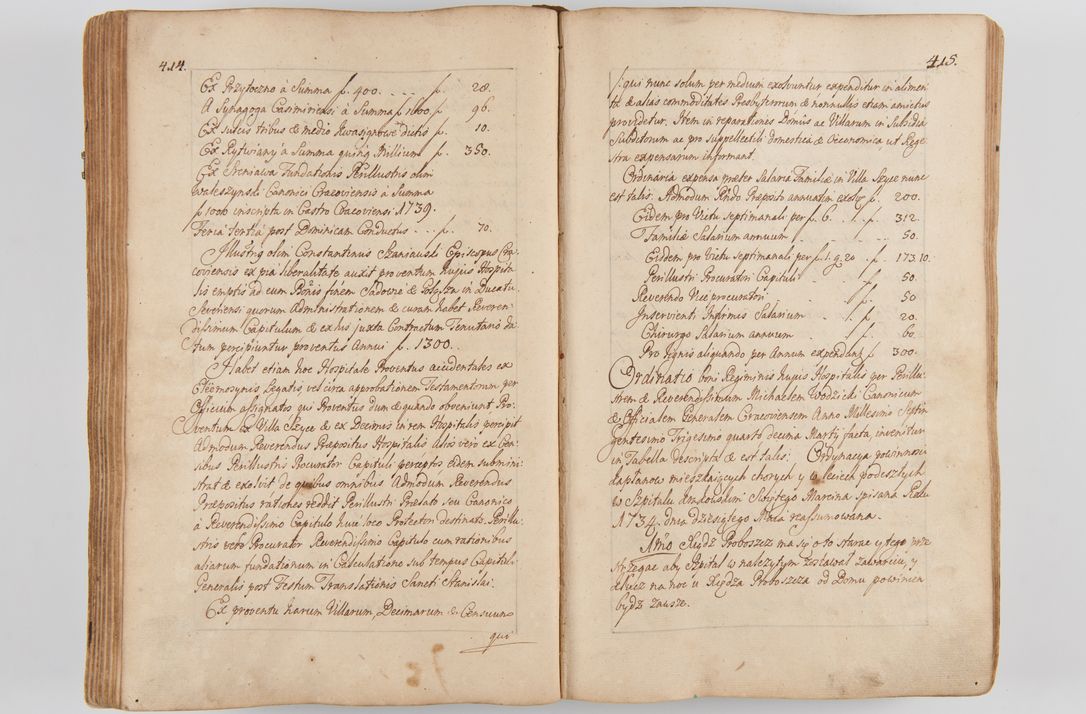 414.
Ex Przytoczno à Summa f. 400. . . . f. 28.
A Synagoga Casimiriensi à Summa f. 1600 f. 96.
Ex sulcis tribus & medio Kwasigrowe dictis f. 10.
Ex Rytwiany à Summa quinq Millium f. 350.
Ex Ireniawa Fundationis Perillustris olim
Waleszynski Canonici Cracoviensis à Summa
f. 1000 inscripta in Castro Cracoviensi 1739.
Feria Tertia post Dominicam Conductus . . . f. 70.
Illustris olim Constantinus Szaniauski Episcopus Cra-
coviensis ex pia liberalitate auxit proventum hujus Hospita-
lis emptis ad eum Bonis finem Sadowie & in Ducatu
Severiensi quorum Administrationem & curam habet Reveren-
dissimum Capitulum & ex his juxta Contractum Tenutario da-
tum percipiuntur proventus Annui f. 1300.
Habet etiam hoc Hospitale Proventus accidentales ex
Eleemosynis Legatis, vel circa approbationem Testamentorum per
Officium assignatos qui Proventus dum & quando obveniunt Pro-
ventum Ex Villa Szyce & ex Decimis in rem Hospitalis percipit
Admodum Reverendus Præpositus Hospitalis alios vero ex Cen-
sibus Perillustris Procurator Capituli perceptos eidem submini-
strat & exolvit de quibus omnibus Admodum Reverendus
Præpositus rationes reddit Perillustri Prælato seu Canonico
à Reverendissimo Capitulo huic loco Protectori destinato. Perillu-
stris vero Procurator Reverendissimo Capitulo cum rationibus
aliarum fundationum in Calculatione sub tempus Capituli
Generalis post Festum Translationis Sancti Stanislai.
Ex proventu harum Villarum, Decimarum & Censuum
qui
415.
f. qui nunc solum per medium exolvuntur expenditur in alimen-
ta & alias commoditates Presbyterorum & nonnullis etiam amictus
providetur. Item in reparationes Domûs ac Villarum in Subsidia
Subditorum ac pro suppellectili domestica & Oeconomica, ut Rege-
stra expensarum informant.
Ordinaria expensa præter Salaria Familiæ in Villa Szyce nunc
est talis. Admodum Rndo Præposito annuatim exolv. f. 200.
Eidem pro Victu septimanali per f. 6. . . . f. 312.
Familiæ Salarium annuum . . . . 50.
Eiddem pro Victu septimanali per f. 1. g. 20 . f. 173.10.
Perillustri Procuratori Capituli . f. 50.
Reverendo Vice procuratori . f. 50
Inservienti Infirmis Salarium . f. 20.
Chirurgo Salarium annuum f. 60.
Pro Lignis aliquando per Annum expendunt f. 300.
Ordinatio boni Regiminis hujus Hospitalis per Perillu-
strem & Reverendissimum Michaelem Wodzicki Canonicum
& Officialem Generalem Cracoviensem Anno Millesimo Septin-
gentesimo Trigesimo quarto decima Martij facta, invenitur
in Tabella descripta & est talis: Ordynacya powinnosci
Kapłanow mieszkaiących chorych y w leciech podeszłych
w Szpitalu Krakowskim Swiętego Marcina spisana Roku
1734. dnia dziesiątego Maia reassumowana.
Amo Xiądz Proboszcz ma się o to starac y tego prze-
strzegac aby Szpital w należytym zostawał zawarciu, y
klucz na noc u Xiędza Proboszcza od Domu powinien
bydź zawsze.